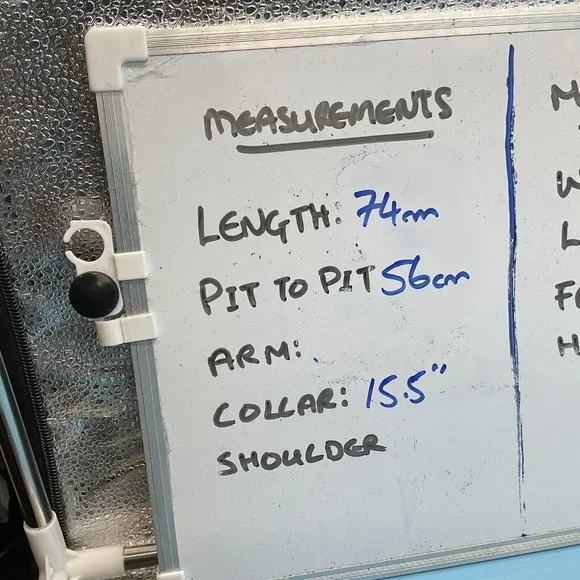 MEASUREMENTS
LENGTH: 74cm
PIT TO PIT 56cm
ARM:
COLLAR: 15.5"
SHOULDER
M
W
L
H